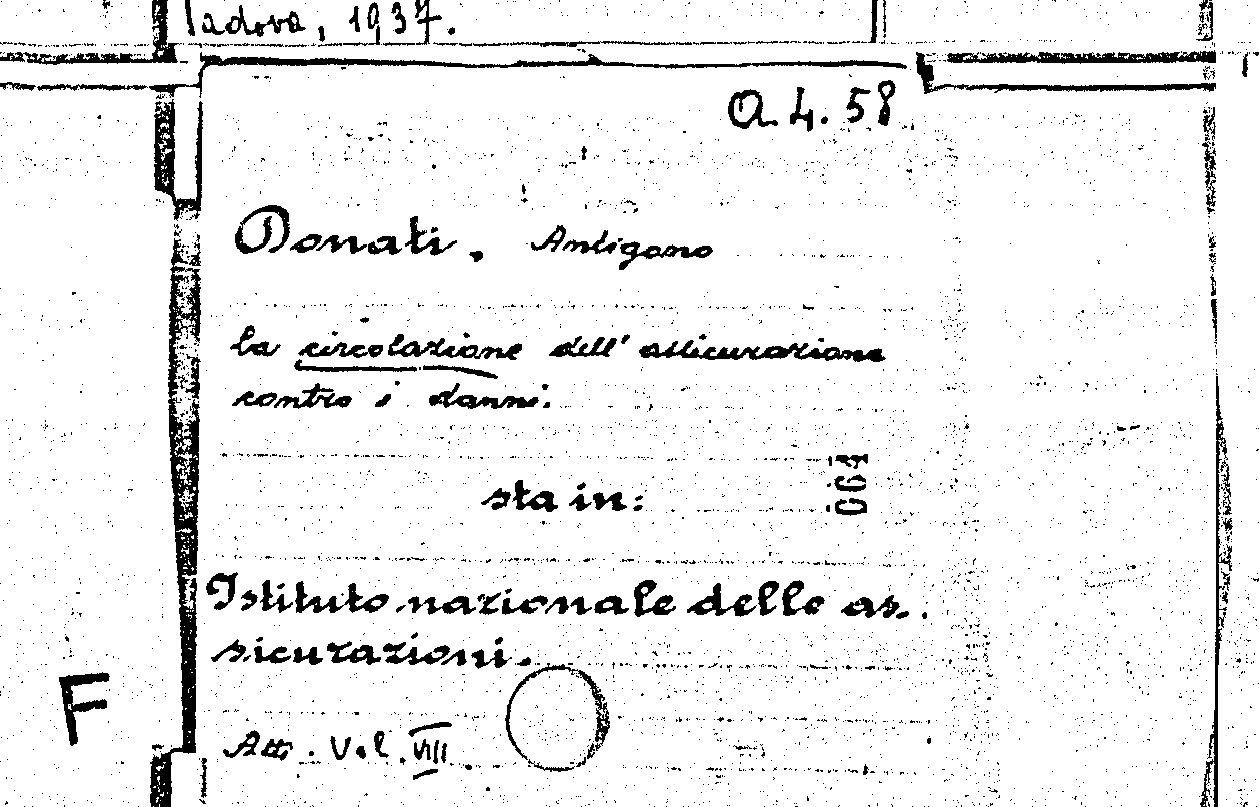 Padova, 1937.
Q. 4. 58
Donati. Antigono
la circolazione dell' assicurazione
contro i danni.
sta in:
Istituto nazionale delle as.
sicurazioni.
F
Atti. Vol. VIII